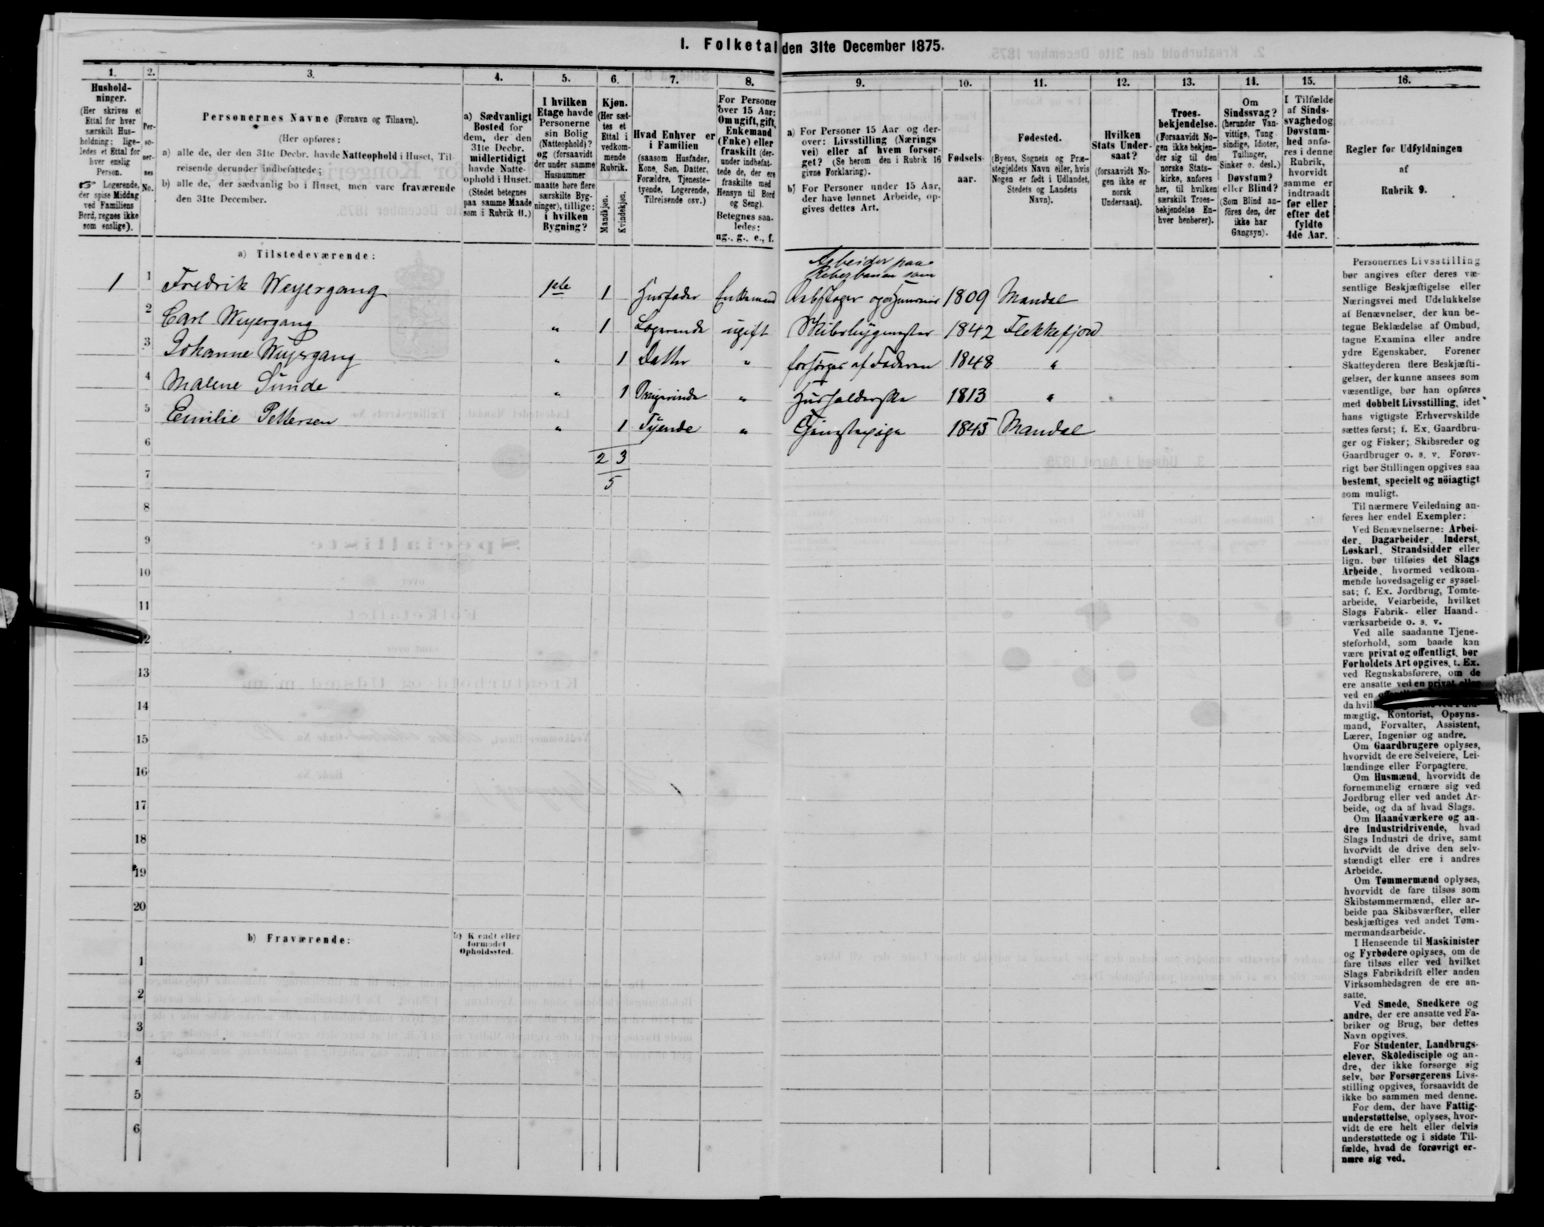 1. Folketal den 31te December 1875.
1.
Hushold-
ninger.
(Her skrives et
Ettal for hver
særskilt Hus-
holdning; lige-
ledes et Ettal for
hver enslig
Person.
☞ Logerende,
der spise Middag
ved Familiens
Bord, regnes ikke
som enslige).
2.
Per-
so-
ner-
nes
No.
3.
Personernes Navne (Fornavn og Tilnavn).
(Her opføres:
a) alle de, der den 31te Decbr. havde Natteophold i Huset, Til-
reisende derunder indbefattede;
b) alle de, der sædvanlig bo i Huset, men vare fraværende
den 31te December.
4.
a) Sædvanligt
Bosted for
dem, der den
31te Decbr.
midlertidigt
havde Natte-
ophold i Huset.
(Stedet betegnes
paa samme Maade
som i Rubrik 11.)
5.
I hvilken
Etage havde
Personerne
sin Bolig
(Natteophold)?
og (forsaavidt
der under samme
Husnummer
maatte høre flere
særskilte Byg-
ninger), tillige:
i hvilken
Bygning?
6.
Kjøn.
(Her sæt-
tes et
Ettal i
vedkom-
mende
Rubrik.
Mandkjøn.
Kvindekjøn.
7.
Hvad Enhver er
i Familien
(saasom Husfader,
Kone, Søn, Datter,
Forældre, Tjeneste-
tyende, Logerende,
Tilreisende osv.)
8.
For Personer
over 15 Aar:
Om ugift, gift,
Enkemand
(Enke) eller
fraskilt (der-
under indbefat-
tede de, der ere
fraskilte med
Hensyn til Bord
og Seng).
Betegnes saa-
ledes:
ug., g., e., f.
9.
a) For Personer 15 Aar og der-
over: Livsstilling (Nærings
vei) eller af hvem forsør-
get? (Se herom den i Rubrik 16
givne Forklaring).
b) For Personer under 15 Aar,
der have lønnet Arbeide, op-
gives dettes Art.
10.
Fødsels-
aar.
11.
Fødested.
(Byens, Sognets og Præ-
stegjeldets Navn eller, hvis
Nogen er født i Udlandet,
Stedets og Landets
Navn).
12.
Hvilken
Stats Under-
saat?
(forsaavidt No-
gen ikke er
norsk
Undersaat).
13.
Troes-
bekjendelse.
(Forsaavidt No-
gen ikke bekjen-
der sig til den
norske Stats-
kirke, anføres
her, til hvilken
særskilt Troes-
bekjendelse En-
hver henhører).
14.
Om
Sindssvag?
(herunder Van-
vittige, Tung
sindige, Idioter,
Tullinger,
Sinker o. desl.)
Døvstum?
eller Blind?
(Som Blind an-
føres den, der
ikke har
Gangsyn).
15.
I Tilfælde
af Sinds-
svaghed og
Døvstum-
hed anfø-
res i denne
Rubrik,
hvorvidt
samme er
indtraadt
før eller
efter det
fyldte
4de Aar.
16.
Regler for Udfyldningen
af
Rubrik 9.
a) Tilstedeværende:
Arbeider paa
1 1 Fredrik Weyergang 1ste 1 Husfader Enkemand 1809 Mandal
2 Carl Weyergang „ 1 Logerende ugift Skibsbygmester 1842 Flekkefjord
3 Johanne Weyergang „ 1 Datter „ forsørges af Faderen 1848 „
4 Malene Sunde „ 1 „ Husholderske 1813 „
5 Emilie Pettersen „ 1 Tyende „ Tjenestepige 1845 Mandal
6 2 3
7 5
8
9
10
11
12
13
14
15
16
17
18
19
20
b) Fraværende:
b) Kjendt eller
formodet
Opholdssted.
1
2
3
4
5
6
Personernes Livsstilling
bør angives efter deres væ-
sentlige Beskjæftigelse eller
Næringsvei med Udelukkelse
af Benævnelser, der kun be-
tegne Beklædelse af Ombud,
tagne Examina eller andre
ydre Egenskaber. Forener
Skatteyderen flere Beskjæfti-
gelser, der kunne ansees som
væsentlige, bør han opføres
med dobbelt Livsstilling, idet
hans vigtigste Erhvervskilde
sættes først; f. Ex. Gaardbru-
ger og Fisker; Skibsreder og
Gaardbruger o. s. v. Forøv-
rigt bør Stillingen opgives saa
bestemt, specielt og nöiagtigt
som muligt.
Til nærmere Veiledning an-
føres her endel Exempler:
Ved Benævnelserne: Arbei-
der, Dagarbeider, Inderst,
Løskarl, Strandsidder eller
lign. bør tilføies det Slags
Arbeide, hvormed vedkom-
mende hovedsagelig er syssel-
sat; f. Ex. Jordbrug, Tomte-
arbeide, Veiarbeide, hvilket
Slags Fabrik- eller Haand-
værksarbeide o. s. v.
Ved alle saadanne Tjene-
steforhold, som baade kan
være privat og offentligt, bør
Forholdets Art opgives, t. Ex.
ved Regnskabsførere, om de
ere ansatte ved en privat eller
ved en
da hvil
mægtig, Kontorist, Opsyns-
mand, Forvalter, Assistent,
Lærer, Ingeniør og andre.
Om Gaardbrugere oplyses,
hvorvidt de ere Selveiere, Lei-
lændinge eller Forpagtere.
Om Husmænd, hvorvidt de
fornemmelig ernære sig ved
Jordbrug eller ved andet Ar-
beide, og da af hvad Slags.
Om Haandværkere og an-
dre Industridrivende, hvad
Slags Industri de drive, samt
hvorvidt de drive den selv-
stændigt eller ere i andres
Arbeide.
Om Tømmermænd oplyses,
hvorvidt de fare tilsøs som
Skibstømmermænd, eller ar-
beide paa Skibsværfter, eller
beskjæftiges ved andet Tøm-
mermandsarbeide.
I Henseende til Maskinister
og Fyrbødere oplyses, om de
fare tilsøs eller ved hvilket
Slags Fabrikdrift eller anden
Virksomhedsgren de ere an-
satte.
Ved Smede, Snedkere og
andre, der ere ansatte ved Fa-
briker og Brug, bør dettes
Navn opgives.
For Studenter, Landbrugs-
elever, Skoledisciple og an-
dre, der ikke forsørge sig
selv, bør Forsørgerens Livs-
stilling opgives, forsaavidt de
ikke bo sammen med denne.
For dem, der have Fattig-
understøttelse, oplyses, hvor-
vidt de ere helt eller delvis
understøttede og i sidste Til-
fælde, hvad de forøvrigt er-
nære sig ved.